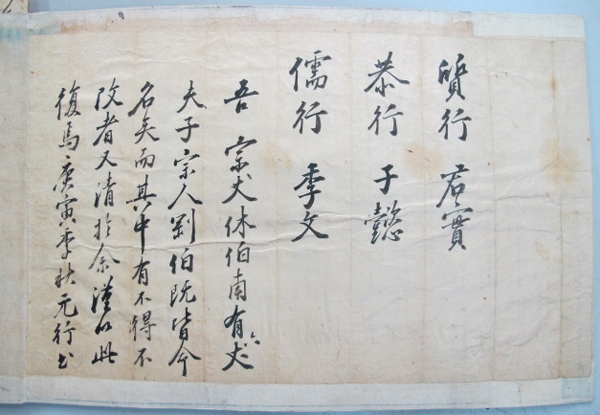 質行 君實
恭行 子懿
儒行 季文
吾 宗丈休伯甫有六丈
夫子宗人剛伯既皆命
名矣而其中有不得不
改者又請於余謹以此
復焉庚寅季秋元行書